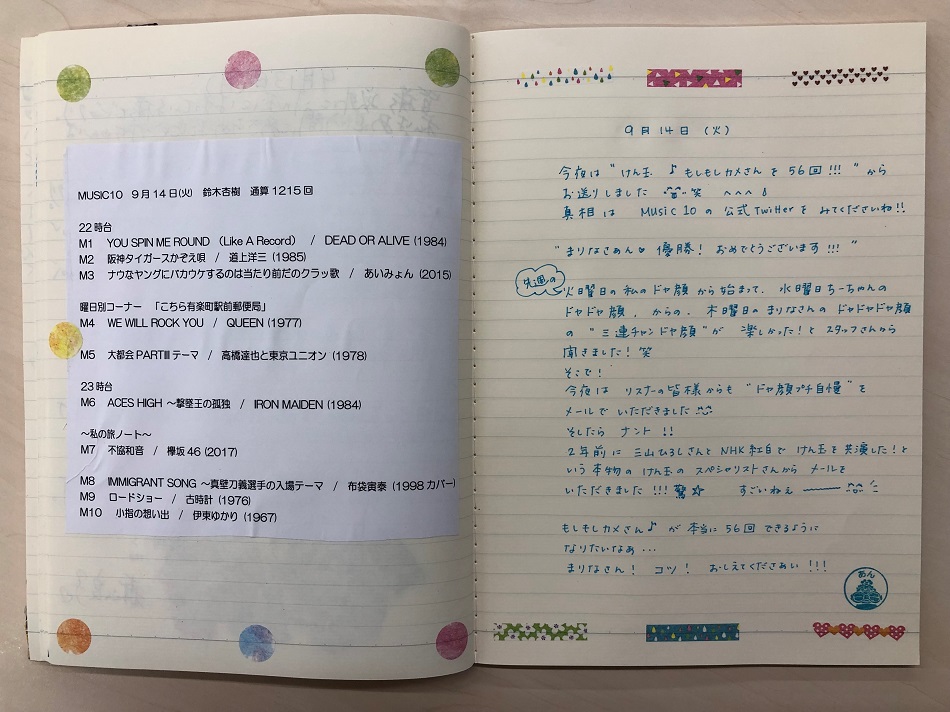 MUSIC10 9月14日(火) 鈴木杏樹 通算1215回
22時台
M1 YOU SPIN ME ROUND (Like A Record) / DEAD OR ALIVE (1984)
M2 阪神タイガースかぞえ唄 / 道上洋三 (1985)
M3 ナウなヤングにバカウケするのは当たり前だのクラッ歌 / あいみょん (2015)
曜日別コーナー 「こちら有楽町駅前郵便局」
M4 WE WILL ROCK YOU / QUEEN (1977)
M5 大都会PARTⅢテーマ / 高橋達也と東京ユニオン (1978)
23時台
M6 ACES HIGH ～撃墜王の孤独 / IRON MAIDEN (1984)
～私の旅ノート～
M7 不協和音 / 欅坂46 (2017)
M8 IMMIGRANT SONG ～真壁刀義選手の入場テーマ / 布袋寅泰 (1998カバー)
M9 ロードショー / 古時計 (1976)
M10 小指の想い出 / 伊東ゆかり (1967)
9月14日 (火)
今夜は "けん玉 ♪もしもしカメさんを56回!!!" から
お送りしました 笑 へへへ♪
真相は Music10の公式Twitterをみてくださいね!!
"まりなさあん 優勝! おめでとうございます!!!"
先週の
火曜日の私のドヤ顔から始まって、水曜日ちーちゃんの
ドヤドヤ顔、からの、木曜日のまりなさんのドヤドヤドヤ顔
の "三連チャンドヤ顔" が 楽しかった!とスタッフさんから
聞きました! 笑
そこで!
今夜は リスナーの皆様からも "ドヤ顔プチ自慢" を
メールで いただきました
そしたら ナント!!
2年前に 三山ひろしさんと NHK紅白で けん玉を共演した!と
いう 本物の けん玉の スペシャリストさんから メールを
いただきました!!! 驚☆ すごいねぇ
もしもしカメさん♪ が 本当に 56回 できるように
なりたいなぁ...
まりなさん! コツ! おしえてくださぁい!!!
あん